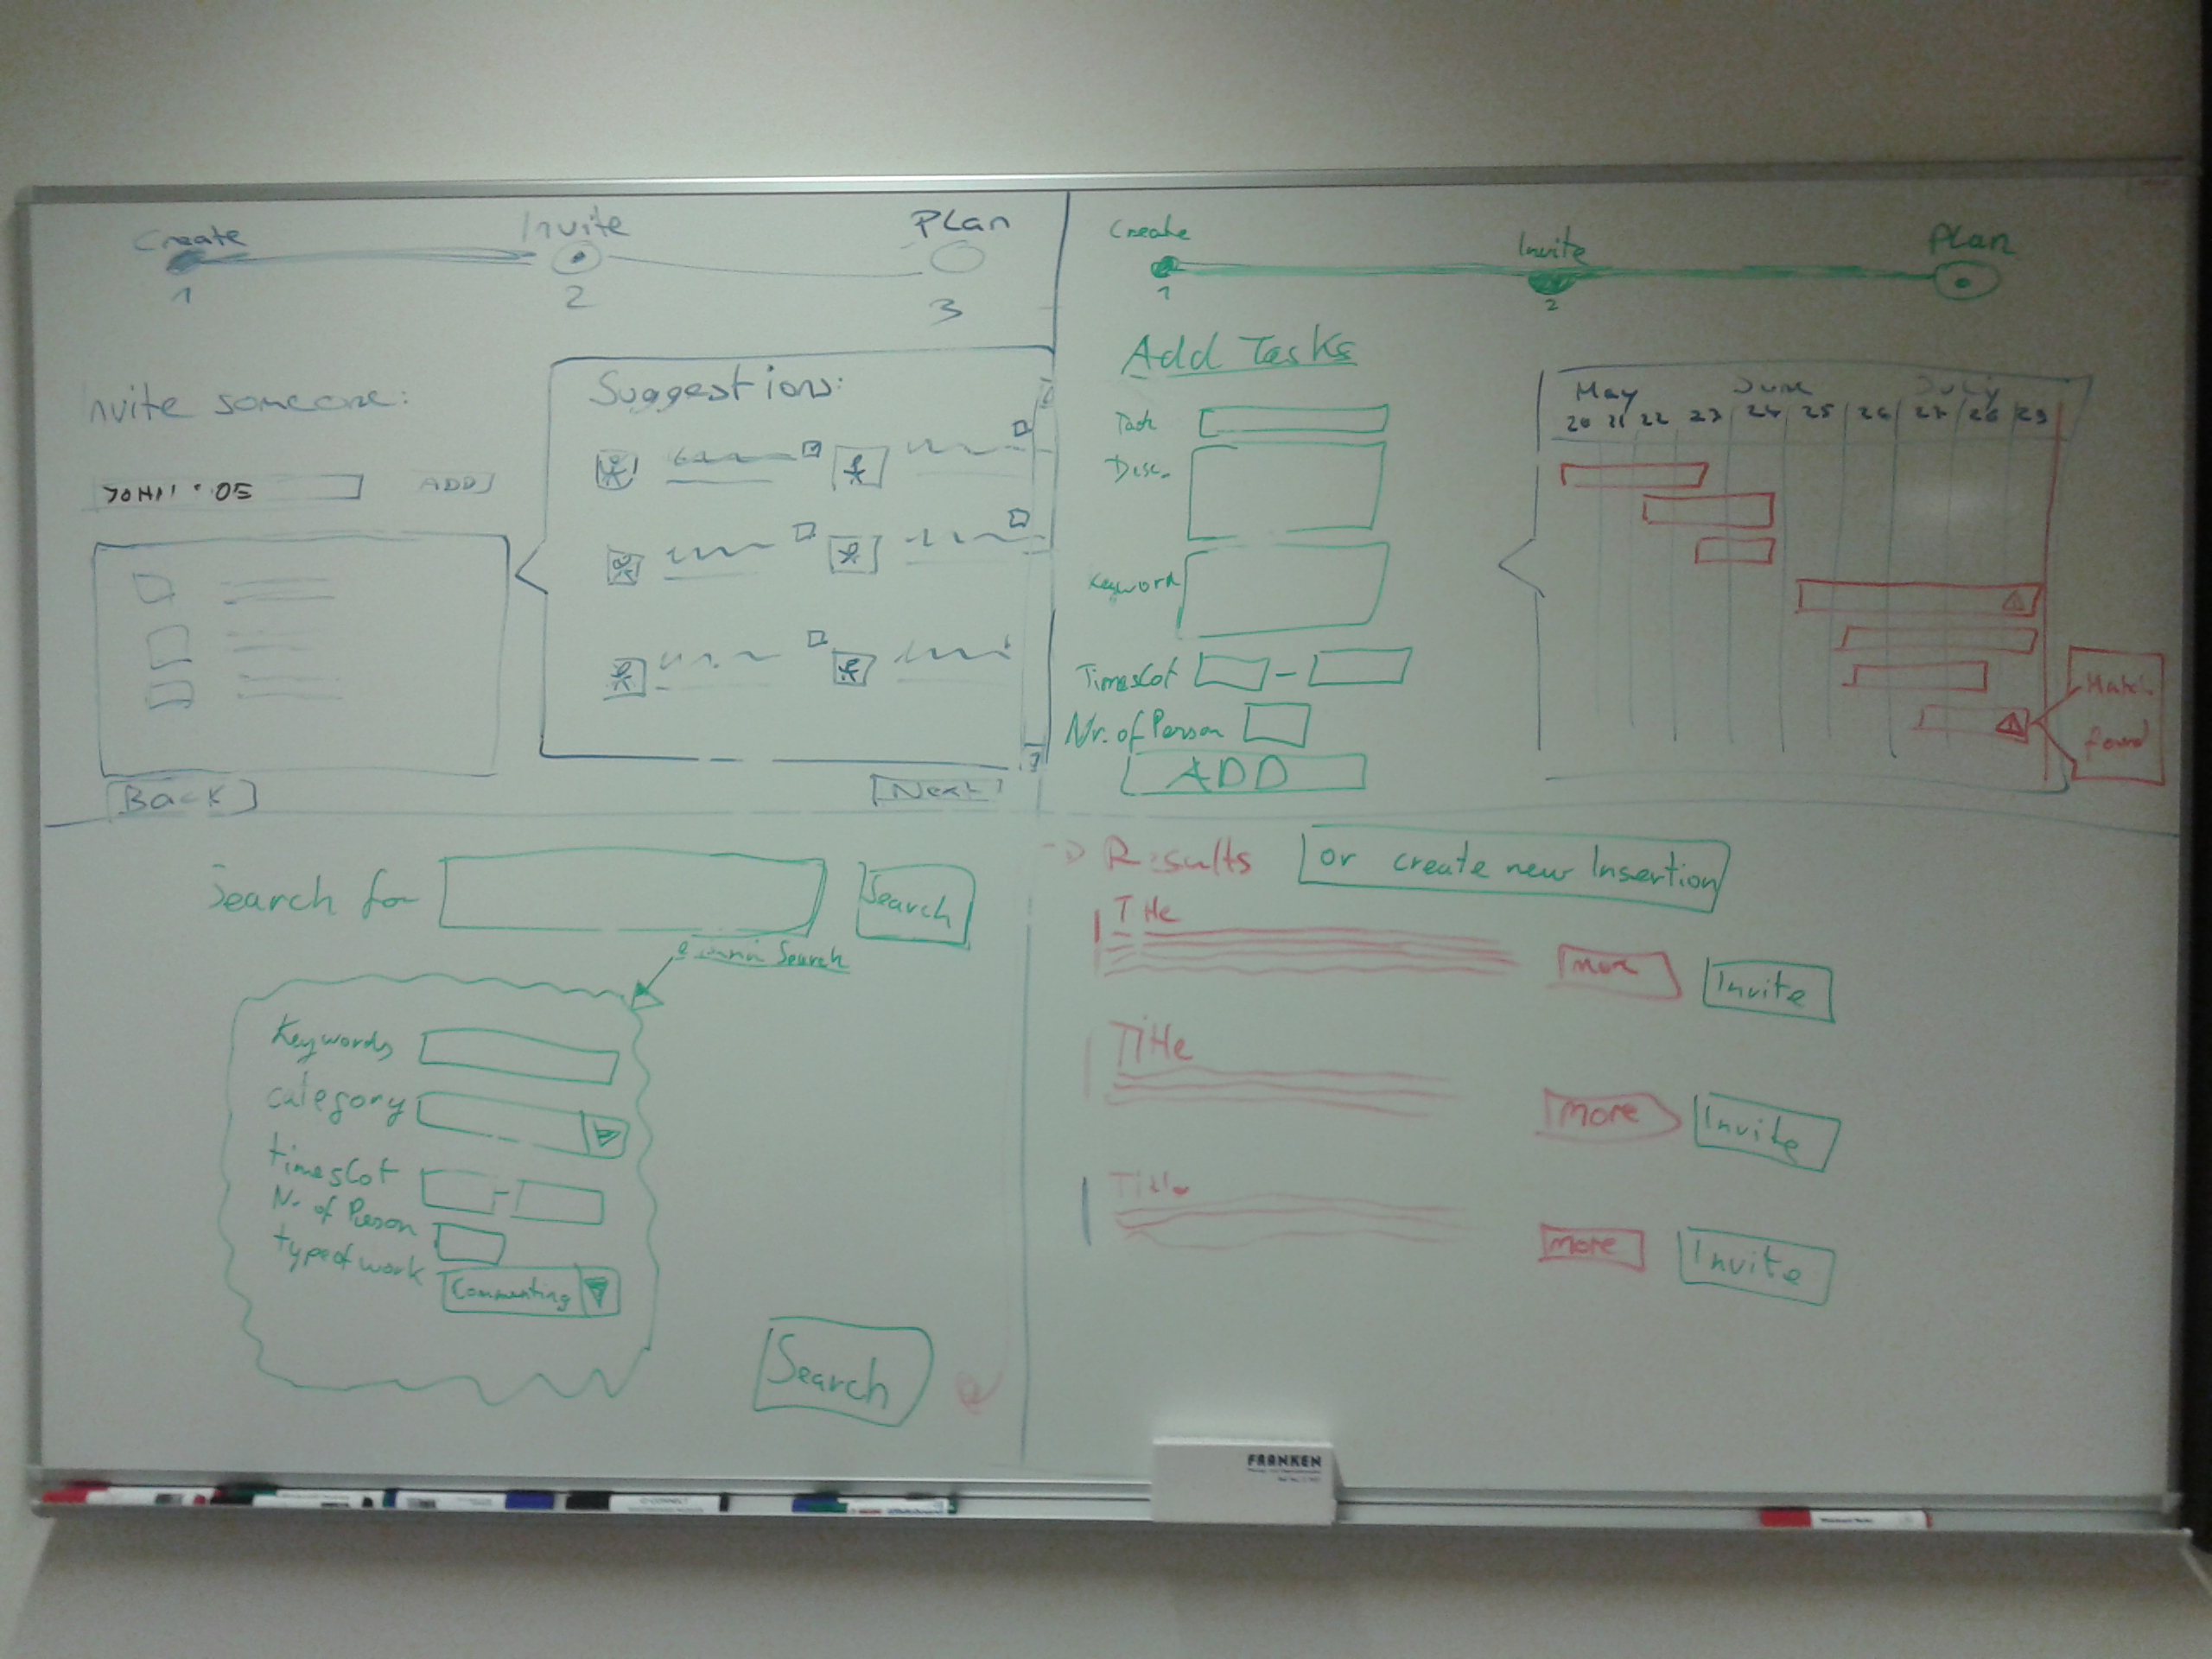 Create
Invite
Plan
1
2
3
Invite someone:
ADD
Suggestions:
Back
Next
Create
Invite
Plan
1
2
Add Tasks
Task
Desc.
Keyword
Timeslot -
Nr. of Person
ADD
May June July
20 21 22 23 24 25 26 27 28 29
Match
found
Search for
Search
Search
Keywords
category
timeslot -
Nr. of Person
type of work
Commenting
Search
Results
or create new Insertion
Title
more
Invite
Title
more
Invite
Title
more
Invite
FRANKEN